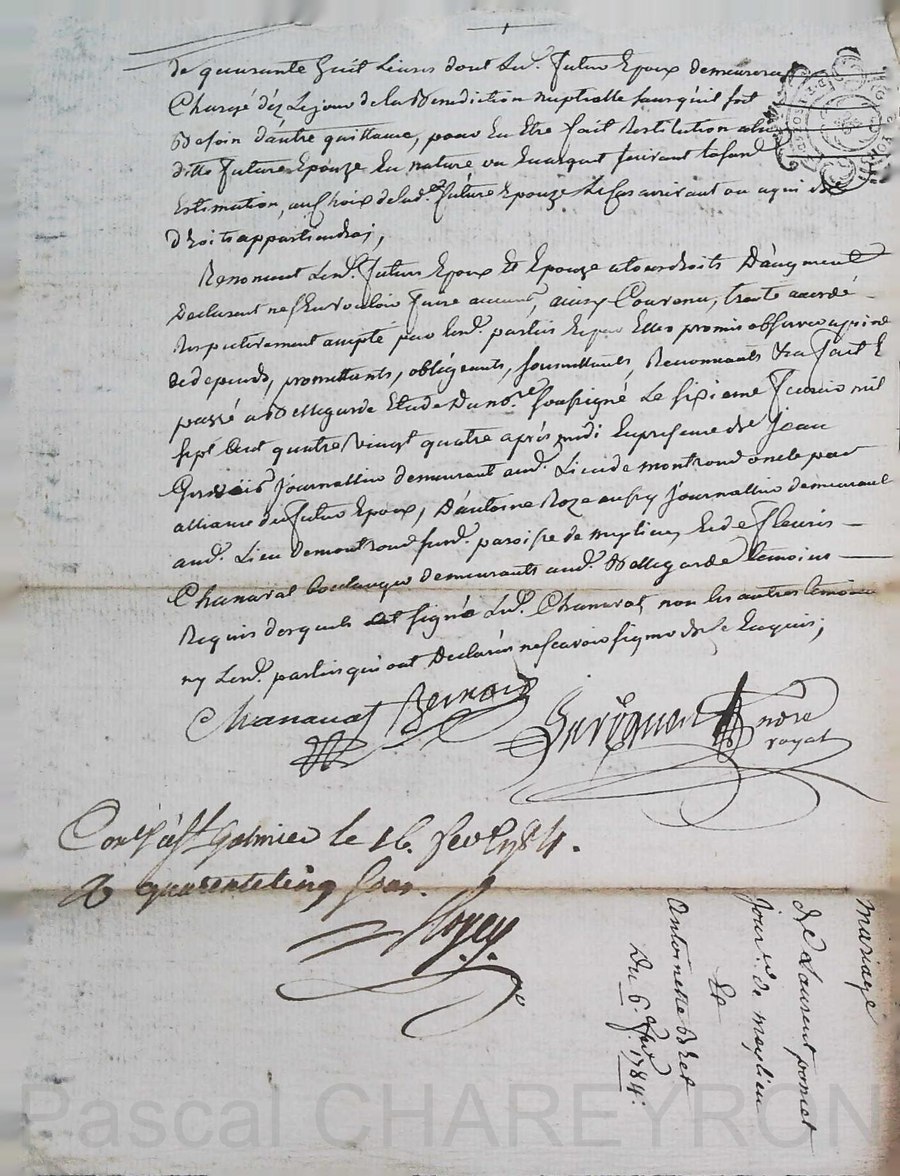 de quarante huit Livres dont Led. futur Epoux demeurera
Chargé déz Le jour de la Benediction nuptialle sans qu'il soit
Besoin d'autre quittance, pour En Etre fait Restitution a la
ditte future Epouze En nature ou En argent suivant
Estimation, au Choix de lad.e future Epouze Le Cas arrivant ou a qui de
droits appartiendrai,
Renoncent Lesd. futurs Epoux Et Epouze a tous droits D'augment
Declarant n'en vouloir faire aucun, ainsy Convenu, traité accordé
Respectivement accepté par Lesd. parties Et par Elles promis observer a peine
de depends, promettants, obligeants, soumettants, Renonceants &a fait E
passé a Bellegarde Etude Du no.re soussigné Le sixieme fevrier mil
sept Cent quatre vingt quatre après midi En presence de Jean
Gervais journallier demeurant aud. Lieu de montrond oncle par
alliance du futur Epoux, D'antoine Roze aussy journallier demeurant
aud. Lieu de montrond susd. paroisse de meylieu, Et de fleuris
Chanavat boulanger demeurants aud. Bellegarde temoins
Requis desquels à signé Led. Chanavat, non les autres temoins
ny Lesd. parties qui ont Declarés ne scavoir signer de ce Enquis;
Chanavat
no.re
royal
Con.lé à S.t Galmier le 16. fev. 1784.
quarente cinq sous.
mariage
de Laurent poncet
jour.er de meylieu
Et
Antoinette
Du 6.e fev.er 1784.
Pascal CHAREYRON